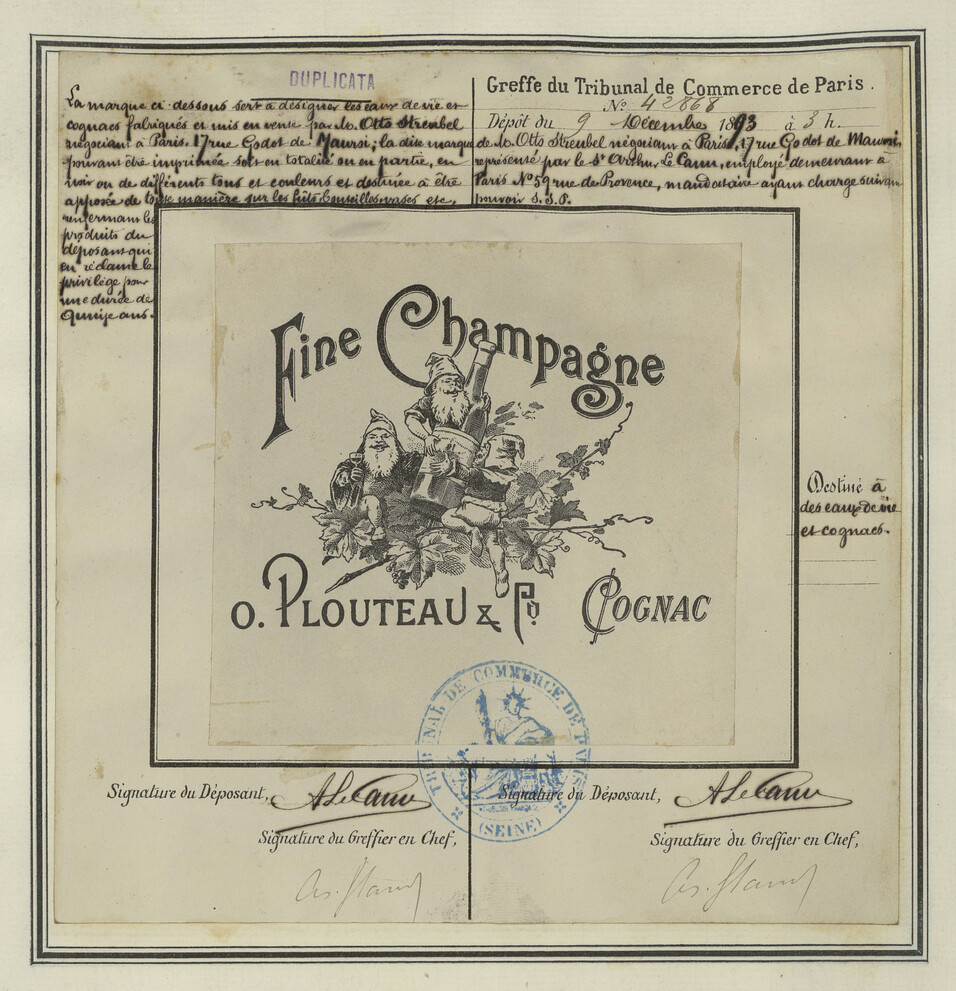 DUPLICATA
La marque ci-dessous sert à désigner les eaux de vie et
cognacs fabriqués et mis en vente par M. Otto Streubel
négociant à Paris, 17 rue Godot de Mauroi; la dite marque
pouvant être imprimée soit en totalité ou en partie, en
noir ou de différents tons et couleurs et destinée à être
apposée de toute manière sur les fûts bouteilles vases etc,
renfermant les
produits du
déposant qui
en réclame le
privilège pour
une durée de
Quinze ans.
Greffe du Tribunal de Commerce de Paris.
No. 42868
Dépôt du 9 Décembre 1893 à 3 h.
de M. Otto Streubel négociant à Paris, 17 rue Godot de Mauroi,
représenté par le Sr Arthur Le Cann, employé demeurant à
Paris No 59 rue de Provence, mandataire ayant charge suivant
pouvoir S.S.P.
Fine Champagne
O. PLOUTEAU & Co. COGNAC
Destiné à
des eaux de vie
et cognacs.
TRIBUNAL DE COMMERCE DE PARIS
(SEINE)
Signature du Déposant, A Le Cann
Signature du Greffier en Chef,
Signature du Déposant, A Le Cann
Signature du Greffier en Chef,